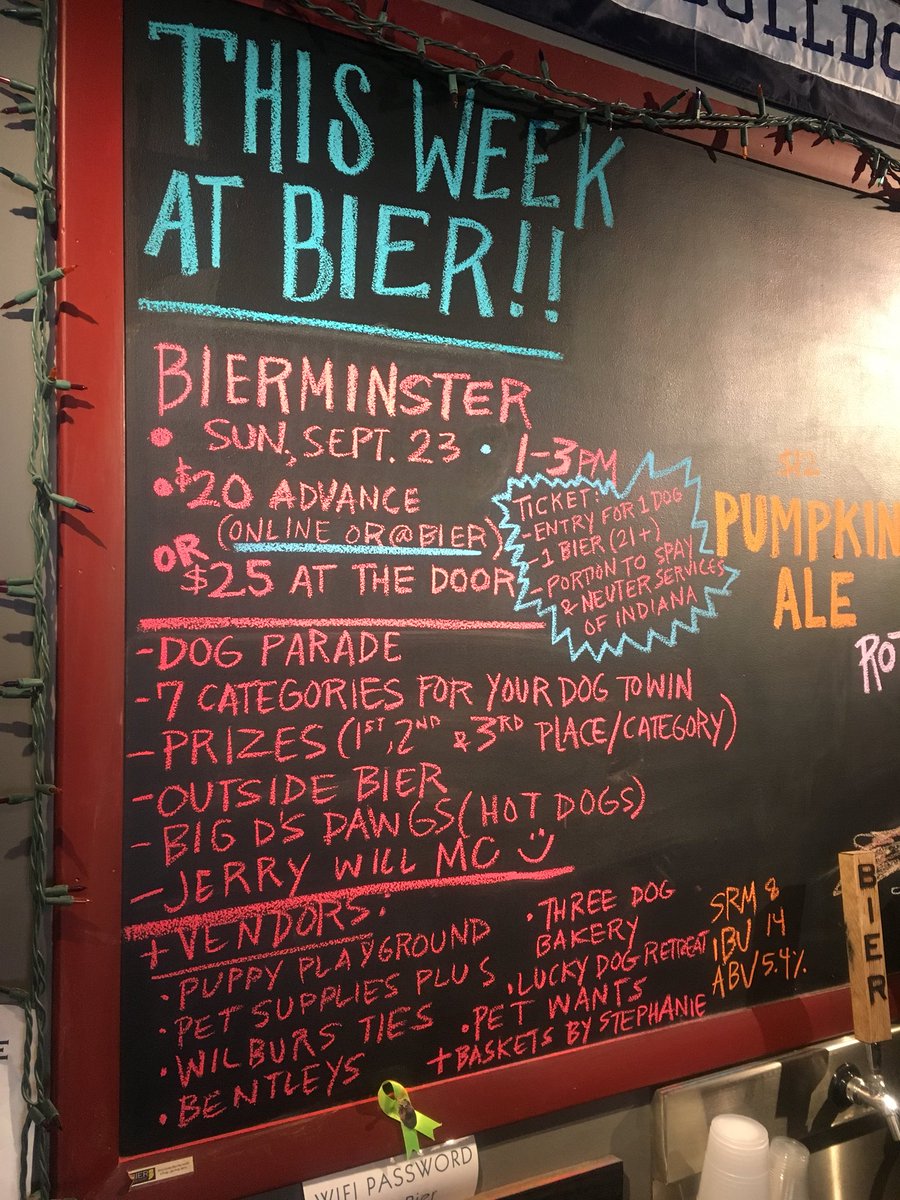 THIS WEEK
AT BIER!!
BIERMINSTER
• SUN, SEPT. 23 • 1-3PM
• $20 ADVANCE
(ONLINE OR @ BIER)
OR $25 AT THE DOOR
TICKET:
-ENTRY FOR 1 DOG
-1 BIER (21+)
-PORTION TO SPAY
& NEUTER SERVICES
OF INDIANA
-DOG PARADE
-7 CATEGORIES FOR YOUR DOG TO WIN
-PRIZES (1ST, 2ND & 3RD PLACE/CATEGORY)
-OUTSIDE BIER
-BIG D'S DAWGS (HOT DOGS)
-JERRY WILL MC
+VENDORS:
• PUPPY PLAYGROUND
• PET SUPPLIES PLUS
• WILBURS TIES
• BENTLEYS
• THREE DOG
BAKERY
• LUCKY DOG RETREAT
• PET WANTS
+ BASKETS BY STEPHANIE
PUMPKIN
ALE
SRM 8
IBU 14
ABV 5.4%
BIER
WIFI PASSWORD
Bier